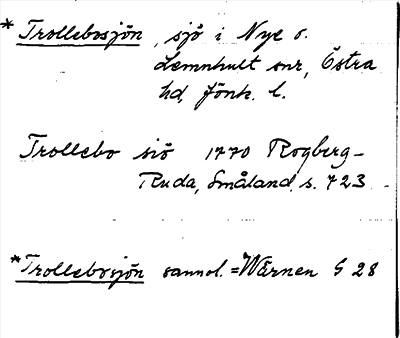 *Trollebosjön, sjö i Nye o.
Lemnhult snr, Östra
hd, Jönk. l.
Trollebo siö 1770 Rogberg-
Ruda, Småland, s. 723
*Trollebosjön sannol. = Wärnen G 28